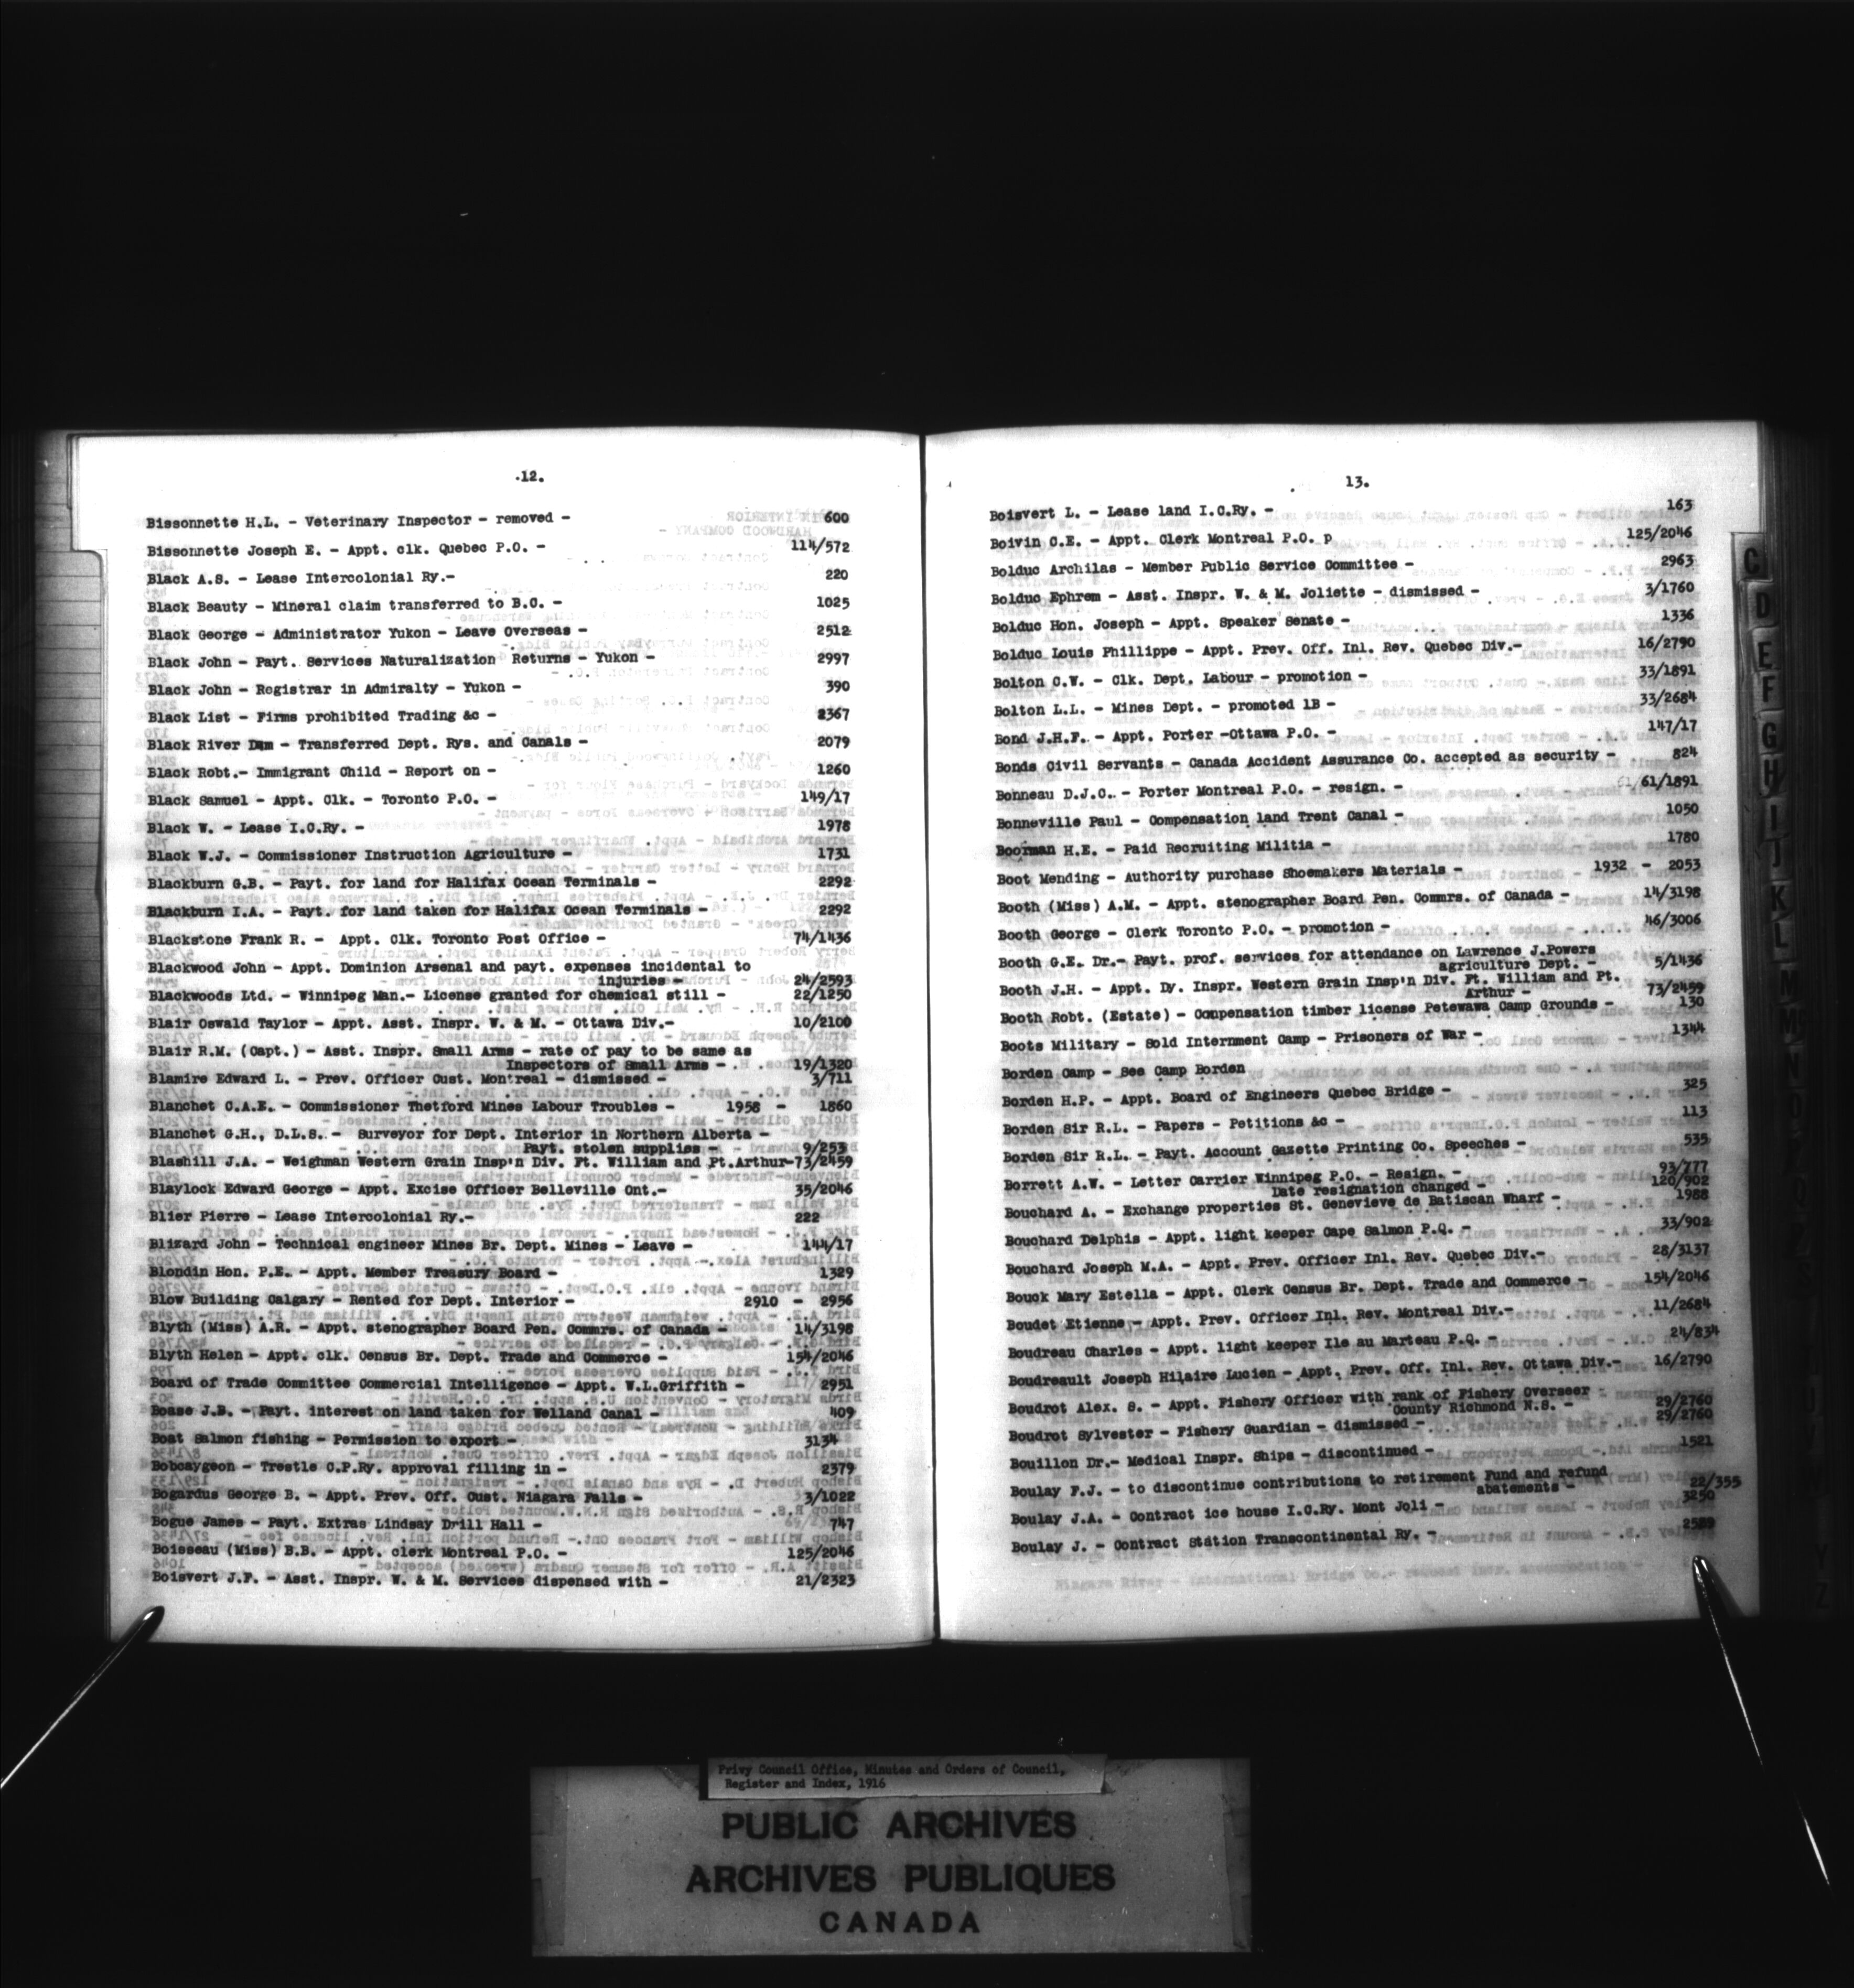 .12.
Bissonnette H.L. - Veterinary Inspector - removed - 600
Bissonnette Joseph E. - Appt. clk. Quebec P.O. - 114/572
Black A.S. - Lease Intercolonial Ry.- 220
Black Beauty - Mineral claim transferred to B.C. - 1025
Black George - Administrator Yukon - Leave Overseas - 2512
Black John - Payt. Services Naturalization Returns - Yukon - 2997
Black John - Registrar in Admiralty - Yukon - 390
Black List - Firms prohibited Trading &c - 2367
Black River Dam - Transferred Dept. Rys. and Canals - 2079
Black Robt.- Immigrant Child - Report on - 1260
Black Samuel - Appt. Clk. - Toronto P.O. - 149/17
Black W. - Lease I.C.Ry. - 1978
Black W.J. - Commissioner Instruction Agriculture - 1731
Blackburn G.B. - Payt. for land for Halifax Ocean Terminals - 2292
Blackburn I.A. - Payt. for land taken for Halifax Ocean Terminals - 2292
Blackstone Frank R. - Appt. Clk. Toronto Post Office - 74/1436
Blackwood John - Appt. Dominion Arsenal and payt. expenses incidental to
injuries - 24/2593
Blackwoods Ltd. - Winnipeg Man.- License granted for chemical still - 22/1250
Blair Oswald Taylor - Appt. Asst. Inspr. W. & M. - Ottawa Div.- 10/2100
Blair R.M. (Capt.) - Asst. Inspr. Small Arms - rate of pay to be same as
Inspectors of Small Arms - 19/1320
Blamire Edward L. - Prev. Officer Cust. Montreal - dismissed - 3/711
Blanchet C.A.E. - Commissioner Thetford Mines Labour Troubles - 1958 - 1860
Blanchet G.H., D.L.S. - Surveyor for Dept. Interior in Northern Alberta -
Payt. stolen supplies - 9/253
Blashill J.A. - Weighman Western Grain Insp'n Div. Ft. William and Pt.Arthur-73/2459
Blaylock Edward George - Appt. Excise Officer Belleville Ont.- 35/2046
Blier Pierre - Lease Intercolonial Ry.- 222
Blizard John - Technical engineer Mines Br. Dept. Mines - Leave - 144/17
Blondin Hon. P.E. - Appt. Member Treasury Board - 1329
Blow Building Calgary - Rented for Dept. Interior - 2910 - 2956
Blyth (Miss) A.R. - Appt. stenographer Board Pen. Commrs. of Canada - 14/3198
Blyth Helen - Appt. clk. Census Br. Dept. Trade and Commerce - 154/2046
Board of Trade Committee Commercial Intelligence - Appt. W.L.Griffith - 2951
Boase J.B. - Payt. interest on land taken for Welland Canal - 409
Boat Salmon fishing - Permission to export - 3134
Bobcaygeon - Trestle C.P.Ry. approval filling in - 2379
Bogardus George B. - Appt. Prev. Off. Cust. Niagara Falls - 3/1022
Bogue James - Payt. Extras Lindsay Drill Hall - 747
Boisseau (Miss) B.B. - Appt. clerk Montreal P.O. - 125/2046
Boisvert J.F. - Asst. Inspr. W. & M. Services dispensed with - 21/2323
13.
Boisvert L. - Lease land I.C.Ry. - 163
Boivin C.E. - Appt. Clerk Montreal P.O. p 125/2046
Bolduc Archilas - Member Public Service Committee - 2963
Bolduc Ephrem - Asst. Inspr. W. & M. Joliette - dismissed - 3/1760
Bolduc Hon. Joseph - Appt. Speaker Senate - 1336
Bolduc Louis Phillippe - Appt. Prev. Off. Inl. Rev. Quebec Div.- 16/2790
Bolton C.W. - Clk. Dept. Labour - promotion - 33/1891
Bolton L.L. - Mines Dept. - promoted 1B - 33/2684
Bond J.H.F. - Appt. Porter -Ottawa P.O. - 147/17
Bonds Civil Servants - Canada Accident Assurance Co. accepted as security - 824
Bonneau D.J.C. - Porter Montreal P.O. - resign. - 61/1891
Bonneville Paul - Compensation land Trent Canal - 1050
Boorman H.E. - Paid Recruiting Militia - 1780
Boot Mending - Authority purchase Shoemakers Materials - 1932 - 2053
Booth (Miss) A.M. - Appt. stenographer Board Pen. Commrs. of Canada - 14/3198
Booth George - Clerk Toronto P.O. - promotion - 46/3006
Booth G.E. Dr.- Payt. prof. services for attendance on Lawrence J.Powers
agriculture Dept. - 5/1436
Booth J.H. - Appt. Dy. Inspr. Western Grain Insp'n Div. Ft. William and Pt.
Arthur - 73/2459
Booth Robt. (Estate) - Compensation timber license Petewawa Camp Grounds - 130
Boots Military - Sold Internment Camp - Prisoners of War - 1344
Borden Camp - See Camp Borden
Borden H.P. - Appt. Board of Engineers Quebec Bridge - 325
Borden Sir R.L. - Papers - Petitions &c - 113
Borden Sir R.L. - Payt. Account Gazette Printing Co. Speeches - 535
Borrett A.W. - Letter Carrier Winnipeg P.O. - Resign. - 93/777
Date resignation changed - 120/902
Bouchard A. - Exchange properties St. Genevieve de Batiscan Wharf - 1988
Bouchard Delphis - Appt. light keeper Cape Salmon P.Q. - 33/902
Bouchard Joseph M.A. - Appt. Prev. Officer Inl. Rev. Quebec Div.- 28/3137
Bouck Mary Estella - Appt. Clerk Census Br. Dept. Trade and Commerce - 154/2046
Boudet Etienne - Appt. Prev. Officer Inl. Rev. Montreal Div.- 11/2684
Boudreau Charles - Appt. light keeper Ile au Marteau P.Q. - 24/834
Boudreault Joseph Hilaire Lucien - Appt. Prev. Off. Inl. Rev. Ottawa Div.- 16/2790
Boudrot Alex. S. - Appt. Fishery Officer with rank of Fishery Overseer
County Richmond N.S. - 29/2760
Boudrot Sylvester - Fishery Guardian - dismissed - 29/2760
Bouillon Dr.- Medical Inspr. Ships - discontinued - 1521
Boulay F.J. - to discontinue contributions to retirement Fund and refund
abatements - 22/355
Boulay J.A. - Contract ice house I.C.Ry. Mont Joli - 3250
Boulay J. - Contract Station Transcontinental Ry. - 2589
C
D
E
F
G
H
I
J
K
L
M
Privy Council Office, Minutes and Orders of Council,
Register and Index, 1916
PUBLIC ARCHIVES
ARCHIVES PUBLIQUES
CANADA